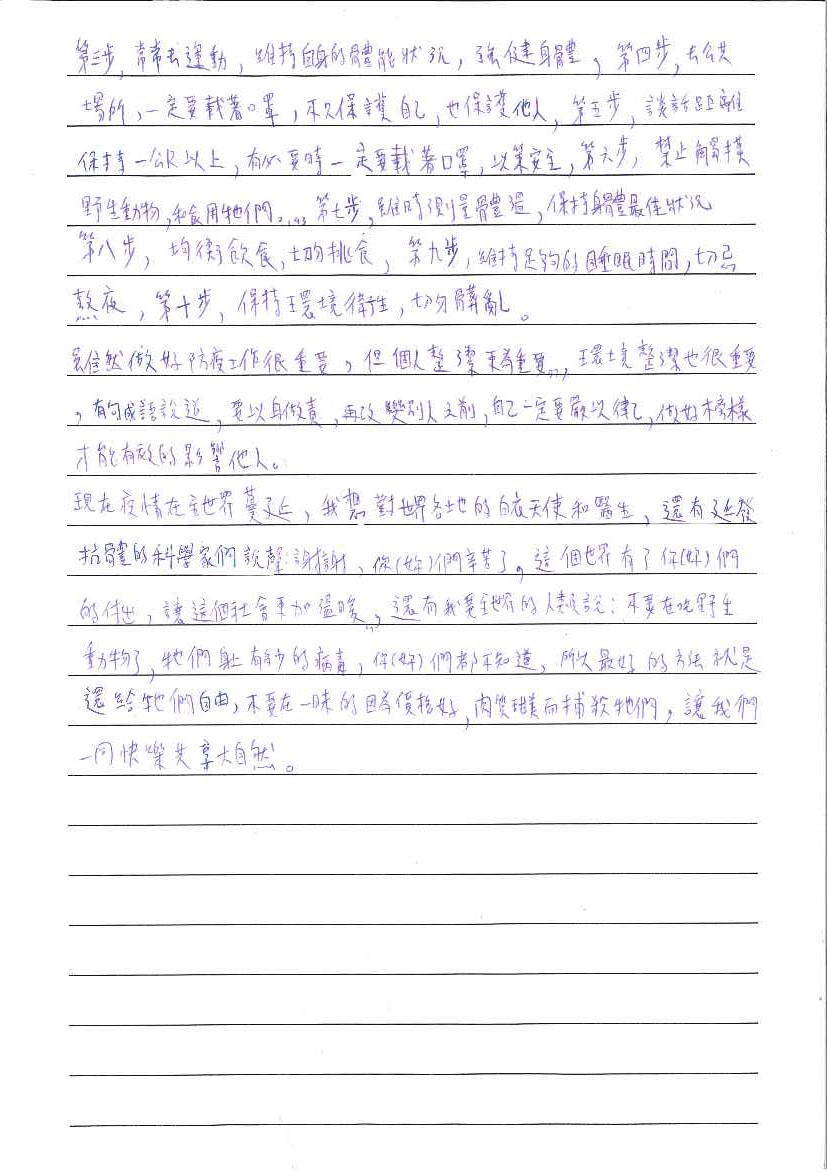 第三步,常常去運動,維持自身的體能狀況,強健身體,第四步,去公共
場所,一定要戴著口罩,不只保護自己,也保護他人,第五步,談話距離
保持一公尺以上,有必要時一定要戴著口罩,以策安全,第六步,禁止觸摸
野生動物,和食用牠們。第七步,隨時測量體溫,保持身體最佳狀況
第八步,均衡飲食,切勿挑食,第九步,維持足夠的睡眠時間,切忌
熬夜,第十步,保持環境衛生,切勿髒亂。
雖然做好防疫工作很重要,但個人整潔更為重要,環境整潔也很重要
,有句成語說道,要以身做責,再改變別人之前,自己一定要嚴以律己,做好榜樣
才能有效的影響他人。
現在疫情在全世界蔓延,我想對世界各地的白衣天使和醫生,還有研發
抗體的科學家們說聲:謝謝,你(妳)們辛苦了。這個世界有了你(妳)們
的付出,讓這個社會更加溫暖,還有我要全世界的人類說:不要在吃野生
動物了,牠們身上有多少的病毒,你(妳)們都不知道,所以最好的方法就是
還給牠們自由,不要在一昧的因為價格好,肉質鮮美而捕殺牠們,讓我們
一同快樂共享大自然。